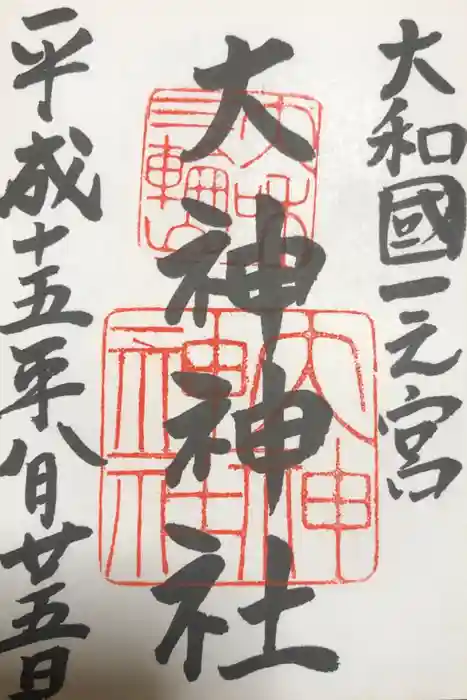 大和國一之宮
大神神社
平成十五年八月廿五日
大和
三輪山
大神
神社